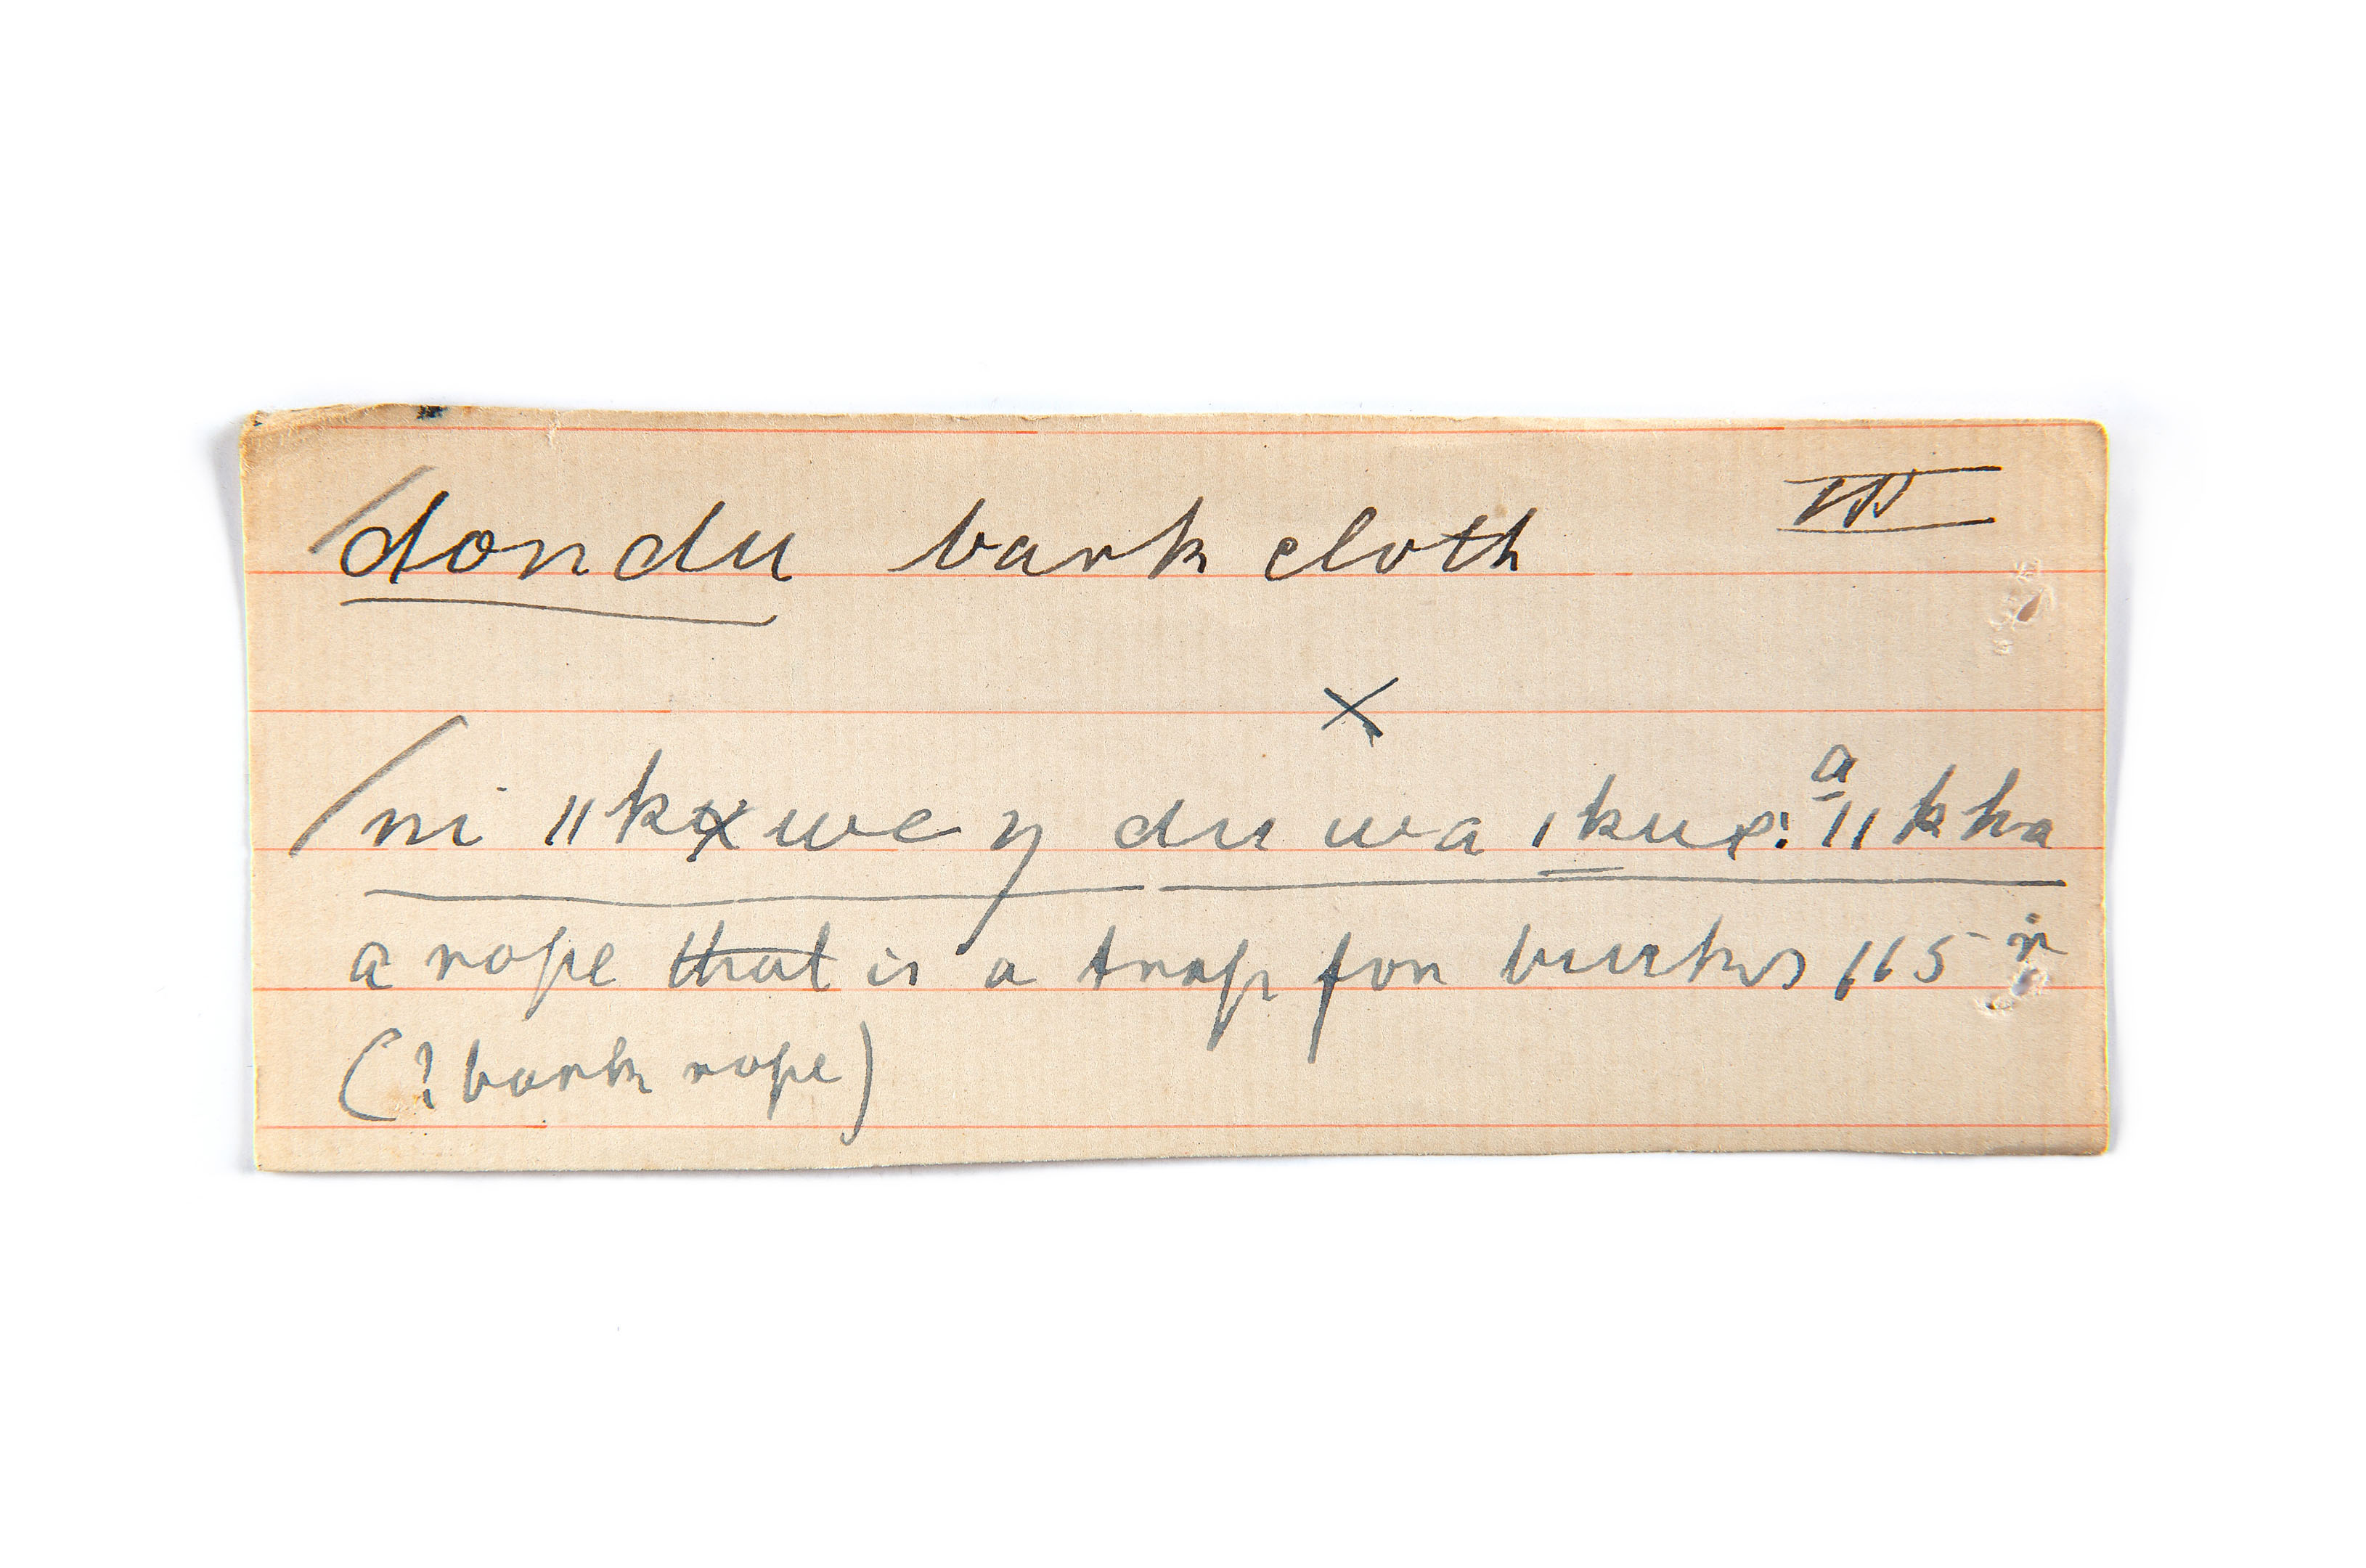 dondu bark cloth III
×
ni ǁkxwe y du wa ǀkue: a ǁkha
a rope that is a trap for bucks 115 r
(? bark rope)